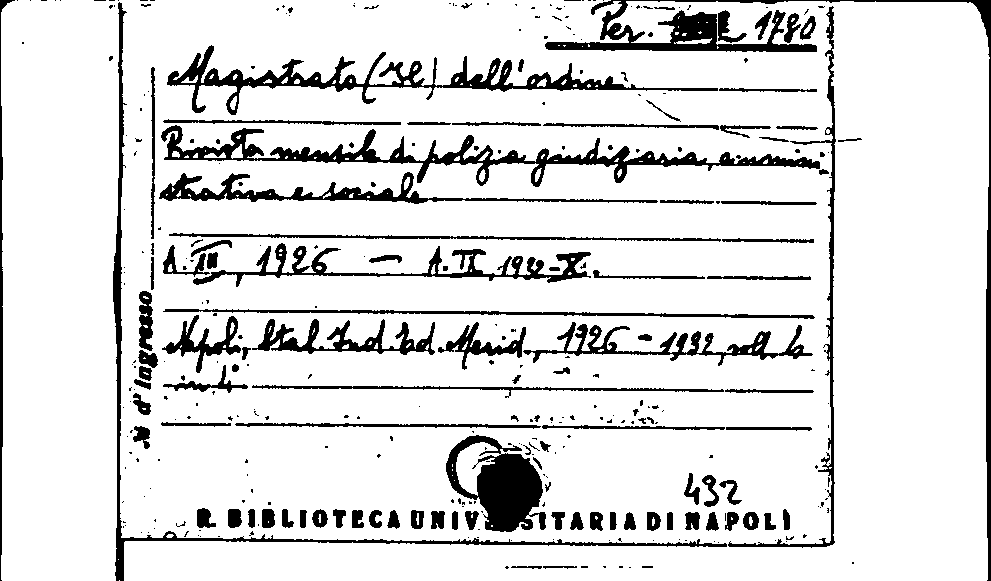 Per. 1780
Magistrato (Il) dell'ordine.
Rivista mensile di polizia giudiziaria, ammini
strativa e sociale
A. III, 1926 — A. IX, 1932-X.
Napoli, Stal. Ind. Ed. Merid., 1926 - 1932, voll. 6
in 4°
N d'ingresso
432
R. BIBLIOTECA UNIVERSITARIA DI NAPOLI